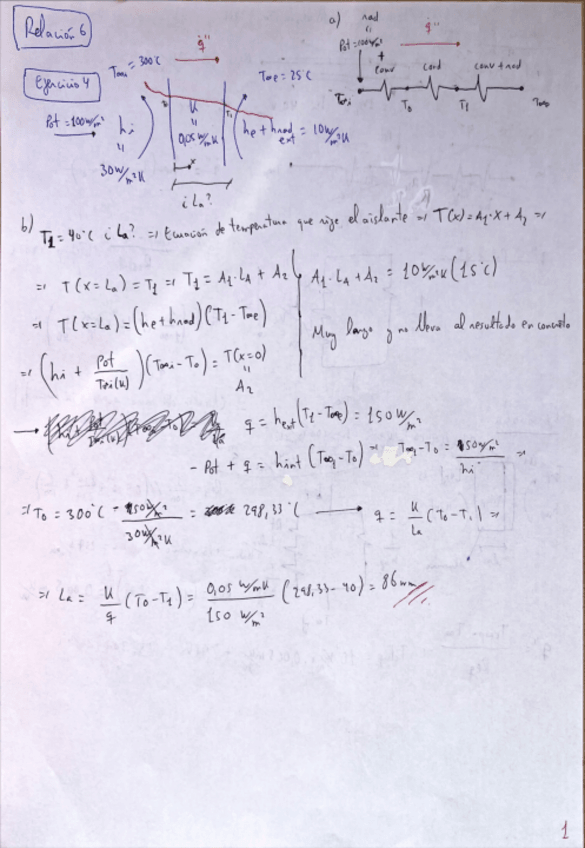 Relación 6
Ejercicio 4
T∞i = 300°C
q̇''
T∞e = 25°C
Pot = 100 W/m²
hi
"
30 W/m²K
T0
K
"
0,05 W/mK
T1
he + hrad ext = 10 W/m²K
x
¿La?
a)
rad
"
Pot = 100 W/m²
+
conv
cond
conv + rad
q̇''
T∞i
T0
T1
T∞e
b) T1 = 40°C ¿La? => Ecuación de temperatura que rige el aislante => T(x) = A1·x + A2 =>
=> T(x=La) = T1 => T1 = A1·LA + A2
A1·LA + A2 = 10 W/m²K (15°C)
=> T(x=La) = (he + hrad)(T1 - T∞e)
Muy largo y no lleva al resultado en concreto
=> (hi + Pot/T∞i(K))(T∞i - T0) = T(x=0)
"
A2
→ q = hext (T1 - T∞e) = 150 W/m²
- Pot + q = hint (T∞i - T0) => T∞i - T0 = 50 W/m² / hi =>
=> T0 = 300°C - 50 W/m² / 30 W/m²K = 298,33°C → q = K/La (T0 - T1) =>
=> La = K/q (T0 - T1) = 0,05 W/mK / 150 W/m² (298,33 - 40) = 86 mm
1